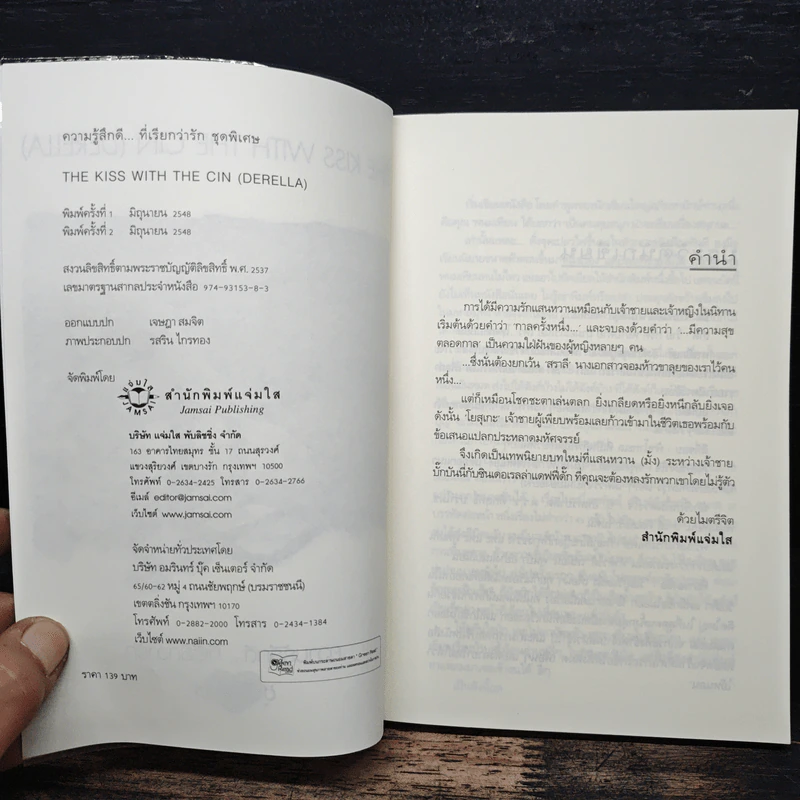 ความรู้สึกดี... ที่เรียกว่ารัก ชุดพิเศษ
THE KISS WITH THE CIN (DERELLA)
พิมพ์ครั้งที่ 1 มิถุนายน 2548
พิมพ์ครั้งที่ 2 มิถุนายน 2548
สงวนลิขสิทธิ์ตามพระราชบัญญัติลิขสิทธิ์ พ.ศ. 2537
เลขมาตรฐานสากลประจำหนังสือ 974-93153-8-3
ออกแบบปก เจษฎา สมจิต
ภาพประกอบปก รสริน ไกรทอง
จัดพิมพ์โดย
แจ่มใส
JAMSAI
สำนักพิมพ์แจ่มใส
Jamsai Publishing
บริษัท แจ่มใส พับลิชชิ่ง จำกัด
163 อาคารไทยสมุทร ชั้น 17 ถนนสุรวงศ์
แขวงสุริยวงศ์ เขตบางรัก กรุงเทพฯ 10500
โทรศัพท์ 0-2634-2425 โทรสาร 0-2634-2766
อีเมล์ editor@jamsai.com
เว็บไซต์ www.jamsai.com
จัดจำหน่ายทั่วประเทศโดย
บริษัท อมรินทร์ บุ๊ค เซ็นเตอร์ จำกัด
65/60-62 หมู่ 4 ถนนชัยพฤกษ์ (บรมราชชนนี)
เขตตลิ่งชัน กรุงเทพฯ 10170
โทรศัพท์ 0-2882-2000 โทรสาร 0-2434-1384
เว็บไซต์ www.naiin.com
ราคา 139 บาท
คำนำ
การได้มีความรักแสนหวานเหมือนกับเจ้าชายและเจ้าหญิงในนิทาน
เริ่มต้นด้วยคำว่า 'กาลครั้งหนึ่ง...' และจบลงด้วยคำว่า '...มีความสุข
ตลอดกาล' เป็นความใฝ่ฝันของผู้หญิงหลายๆ คน
...ซึ่งนั่นต้องยกเว้น 'สราลี' นางเอกสาวจอมห้าวขาลุยของเราไว้คน
หนึ่ง...
แต่ก็เหมือนโชคชะตาเล่นตลก ยิ่งเกลียดหรือยิ่งหนีกลับยิ่งเจอ
ดังนั้น 'โยสุเกะ' เจ้าชายผู้เพียบพร้อมเลยก้าวเข้ามาในชีวิตเธอพร้อมกับ
ข้อเสนอแปลกประหลาดมหัศจรรย์
จึงเกิดเป็นเทพนิยายบทใหม่ที่แสนหวาน (มั้ง) ระหว่างเจ้าชาย
บิ๊กบันนี่กับซินเดอเรลล่าแดฟฟี่ดั๊ก ที่คุณจะต้องหลงรักพวกเขาโดยไม่รู้ตัว
ด้วยไมตรีจิต
สำนักพิมพ์แจ่มใส